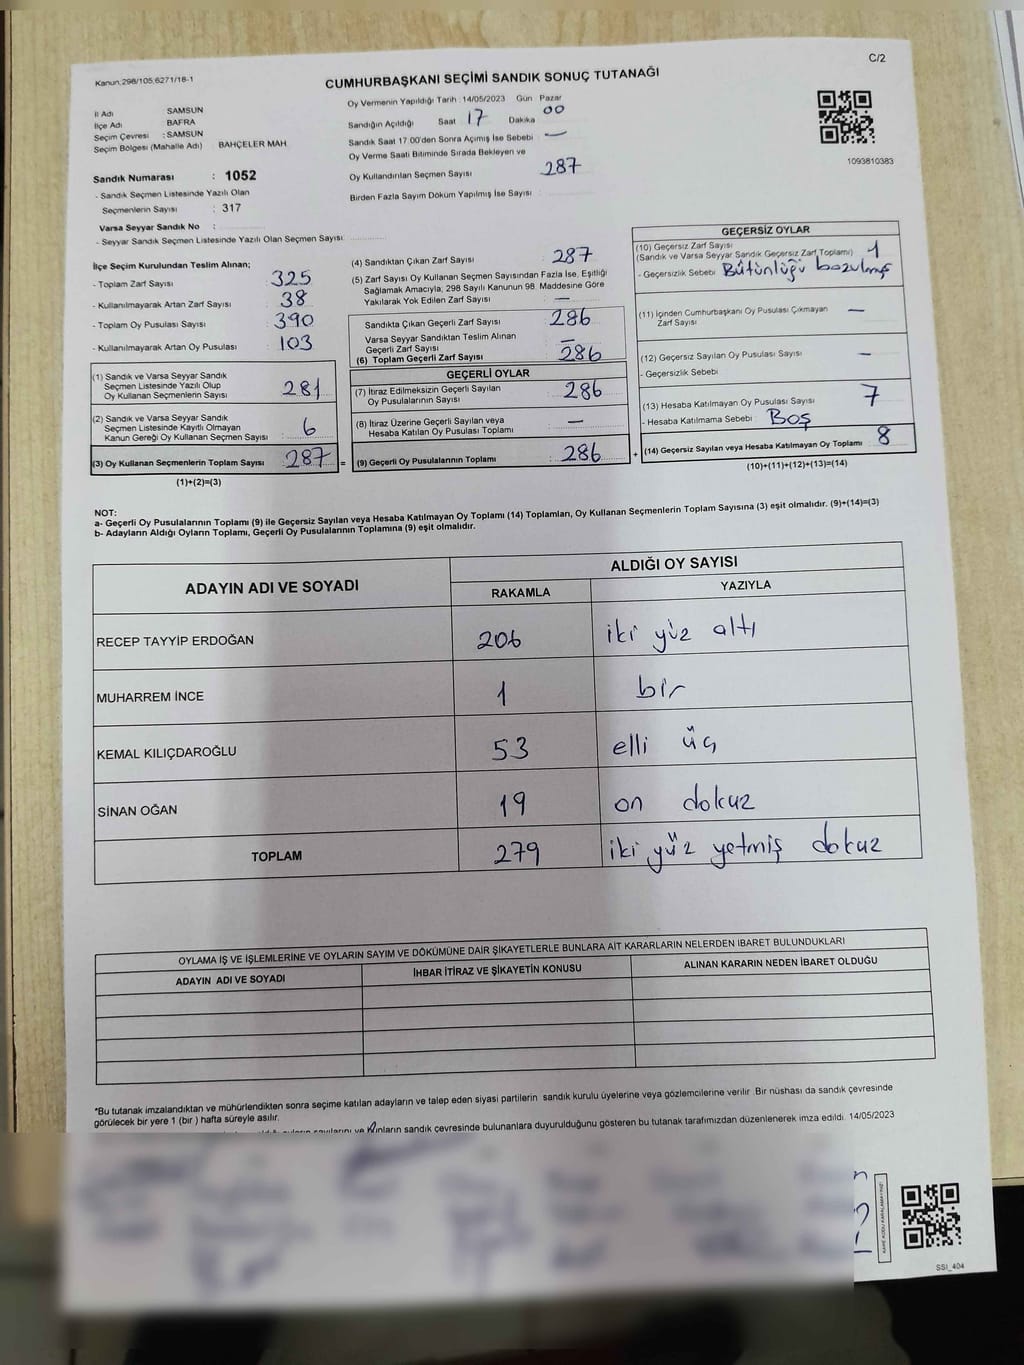 Kanun.298/105.6271/18-1
C/2
CUMHURBAŞKANI SEÇİMİ SANDIK SONUÇ TUTANAĞI
İl Adı SAMSUN
İlçe Adı BAFRA
Seçim Çevresi : SAMSUN
Seçim Bölgesi (Mahalle Adı) : BAHÇELER MAH
Sandık Numarası : 1052
- Sandık Seçmen Listesinde Yazılı Olan
Seçmenlerin Sayısı : 317
Varsa Seyyar Sandık No :
- Seyyar Sandık Seçmen Listesinde Yazılı Olan Seçmen Sayısı:
Oy Vermenin Yapıldığı Tarih : 14/05/2023 Gün Pazar
Sandığın Açıldığı Saat 17 Dakika 00
Sandık Saat 17.00'den Sonra Açımış İse Sebebi —
Oy Verme Saati Bitiminde Sırada Bekleyen ve
Oy Kullandırılan Seçmen Sayısı 287
Birden Fazla Sayım Döküm Yapılmış İse Sayısı
1093810383
İlçe Seçim Kurulundan Teslim Alınan;
- Toplam Zarf Sayısı : 325
- Kullanılmayarak Artan Zarf Sayısı : 38
- Toplam Oy Pusulası Sayısı : 390
- Kullanılmayarak Artan Oy Pusulası : 103
(1) Sandık ve Varsa Seyyar Sandık
Seçmen Listesinde Yazılı Olup
Oy Kullanan Seçmenlerin Sayısı : 281
(2) Sandık ve Varsa Seyyar Sandık
Seçmen Listesinde Kayıtlı Olmayan
Kanun Gereği Oy Kullanan Seçmen Sayısı : 6
(3) Oy Kullanan Seçmenlerin Toplam Sayısı : 287 =
(1)+(2)=(3)
(4) Sandıktan Çıkan Zarf Sayısı : 287
(5) Zarf Sayısı Oy Kullanan Seçmen Sayısından Fazla İse, Eşitliği
Sağlamak Amacıyla; 298 Sayılı Kanunun 98. Maddesine Göre
Yakılarak Yok Edilen Zarf Sayısı : —
Sandıkta Çıkan Geçerli Zarf Sayısı : 286
Varsa Seyyar Sandıktan Teslim Alınan
Geçerli Zarf Sayısı : —
(6) Toplam Geçerli Zarf Sayısı : 286
GEÇERLİ OYLAR
(7) İtiraz Edilmeksizin Geçerli Sayılan
Oy Pusulalarının Sayısı : 286
(8) İtiraz Üzerine Geçerli Sayılan veya
Hesaba Katılan Oy Pusulası Toplamı : —
(9) Geçerli Oy Pusulalarının Toplamı : 286 +
GEÇERSİZ OYLAR
(10) Geçersiz Zarf Sayısı
(Sandık ve Varsa Seyyar Sandık Geçersiz Zarf Toplamı) : 1
- Geçersizlik Sebebi : Bütünlüğü bozulmuş
(11) İçinden Cumhurbaşkanı Oy Pusulası Çıkmayan
Zarf Sayısı : —
(12) Geçersiz Sayılan Oy Pusulası Sayısı : —
- Geçersizlik Sebebi
(13) Hesaba Katılmayan Oy Pusulası Sayısı : 7
- Hesaba Katılmama Sebebi : Boş
(14) Geçersiz Sayılan veya Hesaba Katılmayan Oy Toplamı : 8
(10)+(11)+(12)+(13)=(14)
NOT:
a- Geçerli Oy Pusulalarının Toplamı (9) ile Geçersiz Sayılan veya Hesaba Katılmayan Oy Toplamı (14) Toplamları, Oy Kullanan Seçmenlerin Toplam Sayısına (3) eşit olmalıdır. (9)+(14)=(3)
b- Adayların Aldığı Oyların Toplamı, Geçerli Oy Pusulalarının Toplamına (9) eşit olmalıdır.
ADAYIN ADI VE SOYADI ALDIĞI OY SAYISI
RAKAMLA YAZIYLA
RECEP TAYYİP ERDOĞAN 206 iki yüz altı
MUHARREM İNCE 1 bir
KEMAL KILIÇDAROĞLU 53 elli üç
SİNAN OĞAN 19 on dokuz
TOPLAM 279 iki yüz yetmiş dokuz
OYLAMA İŞ VE İŞLEMLERİNE VE OYLARIN SAYIM VE DÖKÜMÜNE DAİR ŞİKAYETLERLE BUNLARA AİT KARARLARIN NELERDEN İBARET BULUNDUKLARI
ADAYIN ADI VE SOYADI İHBAR İTİRAZ VE ŞİKAYETİN KONUSU ALINAN KARARIN NEDEN İBARET OLDUĞU
*Bu tutanak imzalandıktan ve mühürlendikten sonra seçime katılan adayların ve talep eden siyasi partilerin sandık kurulu üyelerine veya gözlemcilerine verilir. Bir nüshası da sandık çevresinde
görülecek bir yere 1 (bir ) hafta süreyle asılır.
sandık çevresinde bulunanlara duyurulduğunu gösteren bu tutanak tarafımızdan düzenlenerek imza edildi. 14/05/2023
KARE KODU KARALAMAYINIZ
SSI_404